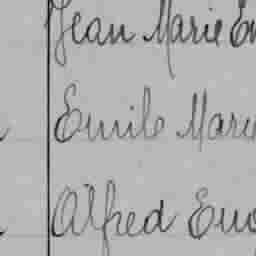 Jean Marie Em
Emile Marie
Alfred Eug